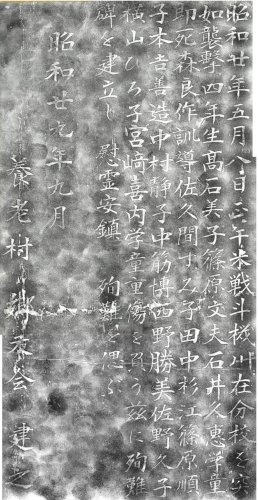 昭和廿年五月八日正午米戦斗機川在分校を突
如襲撃四年生髙石美子篠原文夫石井久恵学童
即死森良作訓導佐久間すゑ子田中杉江篠原順
子本吉善造中村静子中筋博西野勝美佐野久子
横山ひろ子宮﨑喜内学童重傷を負う茲に殉難
碑を建立し慰霊安鎮 殉難を偲ぶ
昭和廿九年九月
養老村 建之